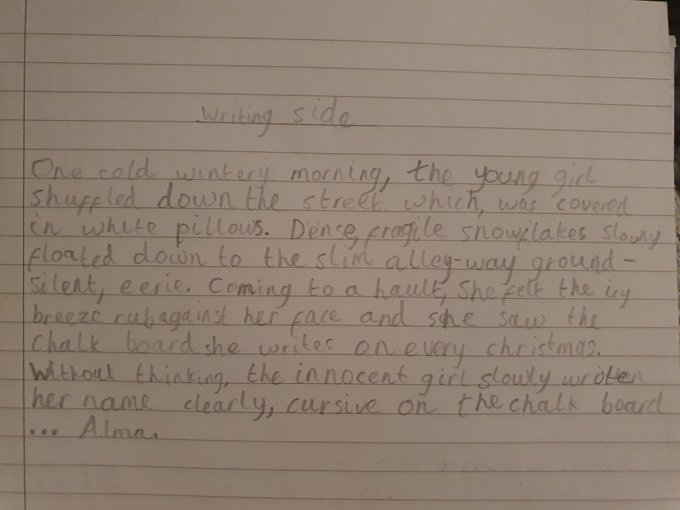 Writing side
One cold wintery morning, the young girl
shuffled down the street which, was covered
in white pillows. Dence, fragile snowflakes slowly
floated down to the slim alley-way ground -
silent, eerie. Coming to a hault, She felt the icy
breeze rub against her face and she saw the
chalk board she writes on every christmas.
Without thinking, the innocent girl slowly wroten
her name clearly, cursive on the chalk board
... Alma.